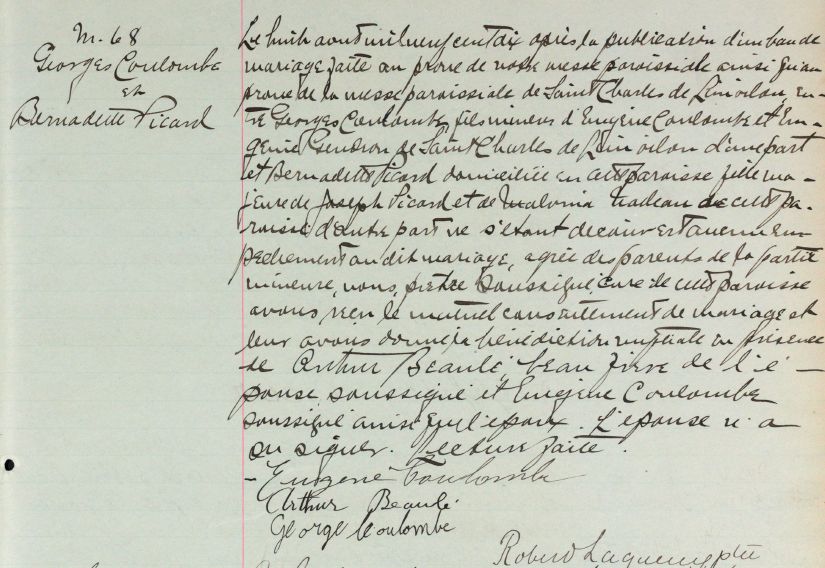 M. 68
Georges Coulombe
et
Bernadette Picard
Le huit aout mil neuf cent dix après la publication d'un ban de
mariage faite au prone de notre messe paroissiale ainsi qu'au
prone de la messe paroissiale de Saint Charles de Limoilou en-
tre Georges Coulombe, fils mineur d'Eugène Coulombe et Eu-
génie Gendron de Saint Charles de Limoilou d'une part
et Bernadette Picard domiciliée en cette paroisse fille ma-
jeure de Joseph Picard et de Malvina Nadeau de cette pa-
roisse d'autre part ne s'étant découvert aucun em-
pêchement au dit mariage, agrée des parents de la partie
mineure, nous, prêtre soussigné, curé de cette paroisse
avons reçu le mutuel consentement de mariage et
leur avons donné la bénédiction nuptiale en présence
de Arthur Beaulé, beau frère de l'é-
pouse soussigné et Eugène Coulombe
soussigné ainsi que l'époux. L'épouse n'a
su signer. Lecture faite.
- Eugene Coulombe
Arthur Beaulé
George Coulombe
Robert Lagueux ptre